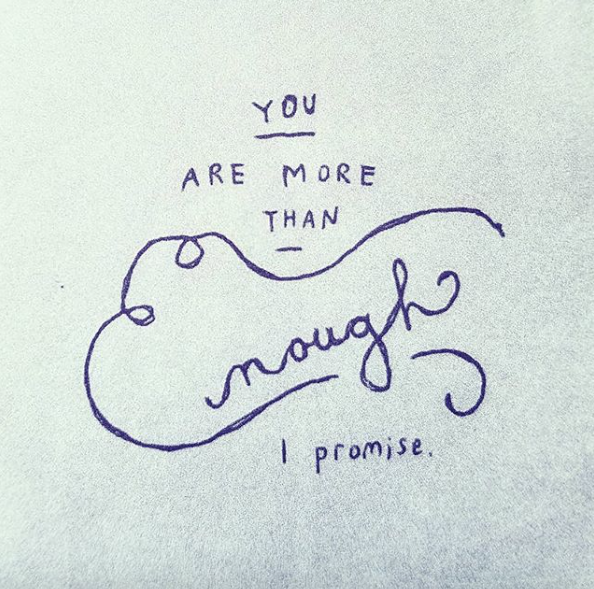 YOU
ARE MORE
THAN
Enough
I promise.